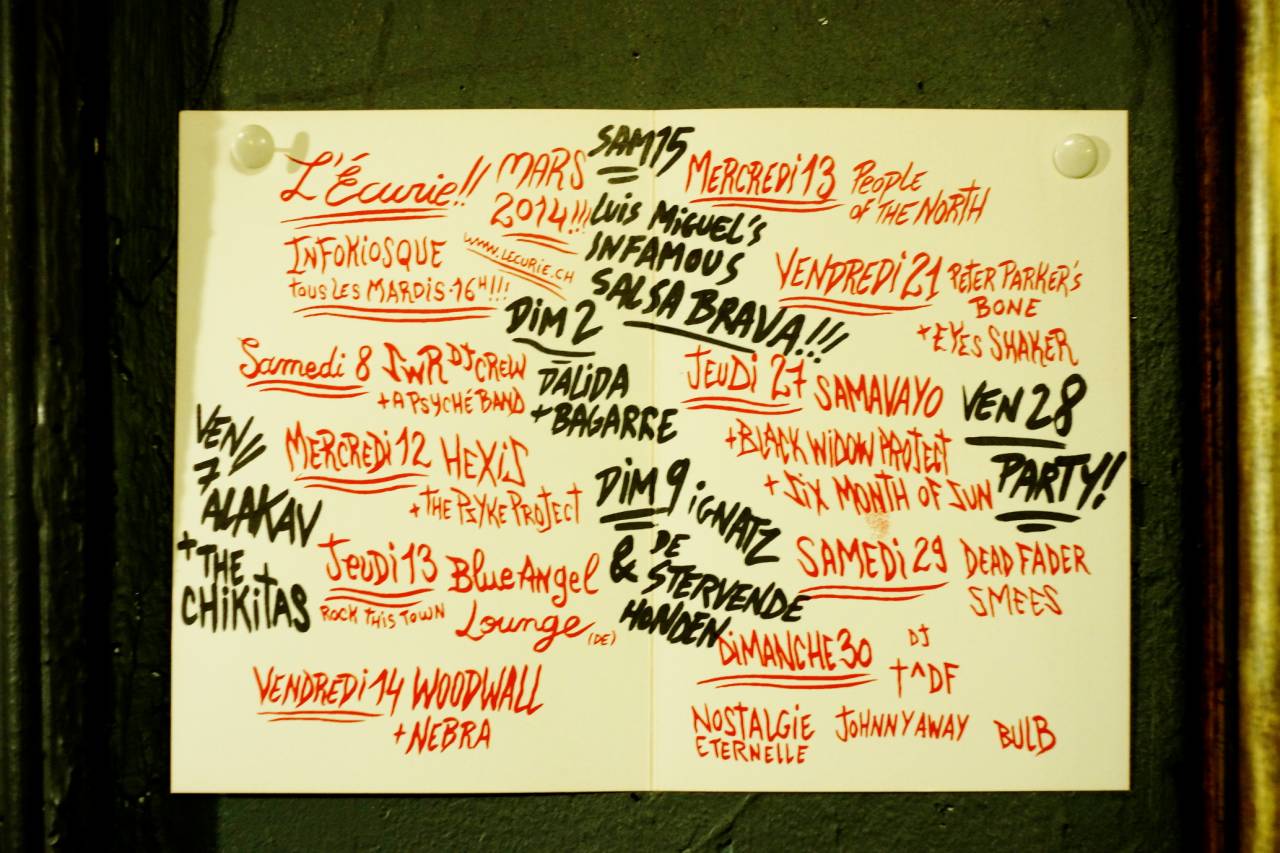 L'Écurie!!
MARS
2014!!!
WWW.LECURIE.CH
INFOKIOSQUE
TOUS LES MARDIS·16H!!!
DIM 2
DALIDA
+ BAGARRE
VEN//
7
ALAKAV
+ THE
CHIKITAS
Samedi 8 SWR DJ CREW
+ A PSYCHÉ BAND
DIM 9 IGNATZ
& DE
STERVENDE
HONDEN
MERCREDI 12 HEXIS
+ THE PSYKE PROJECT
JEUDI 13 Blue Angel
Lounge (DE)
ROCK THIS TOWN
VENDREDI 14 WOODWALL
+ NEBRA
SAM 15
LUIS MIGUEL'S
INFAMOUS
SALSA BRAVA!!!
MERCREDI 13 PEOPLE
OF THE NORTH
VENDREDI 21 PETER PARKER'S
BONE
+ EYES SHAKER
JEUDI 27 SAMAVAYO
+ BLACK WIDOW PROJECT
+ SIX MONTH OF SUN
VEN 28
PARTY!
SAMEDI 29 DEAD FADER
SMEES
DIMANCHE 30 DJ
†^DF
NOSTALGIE
ETERNELLE
JOHNNY AWAY
BULB